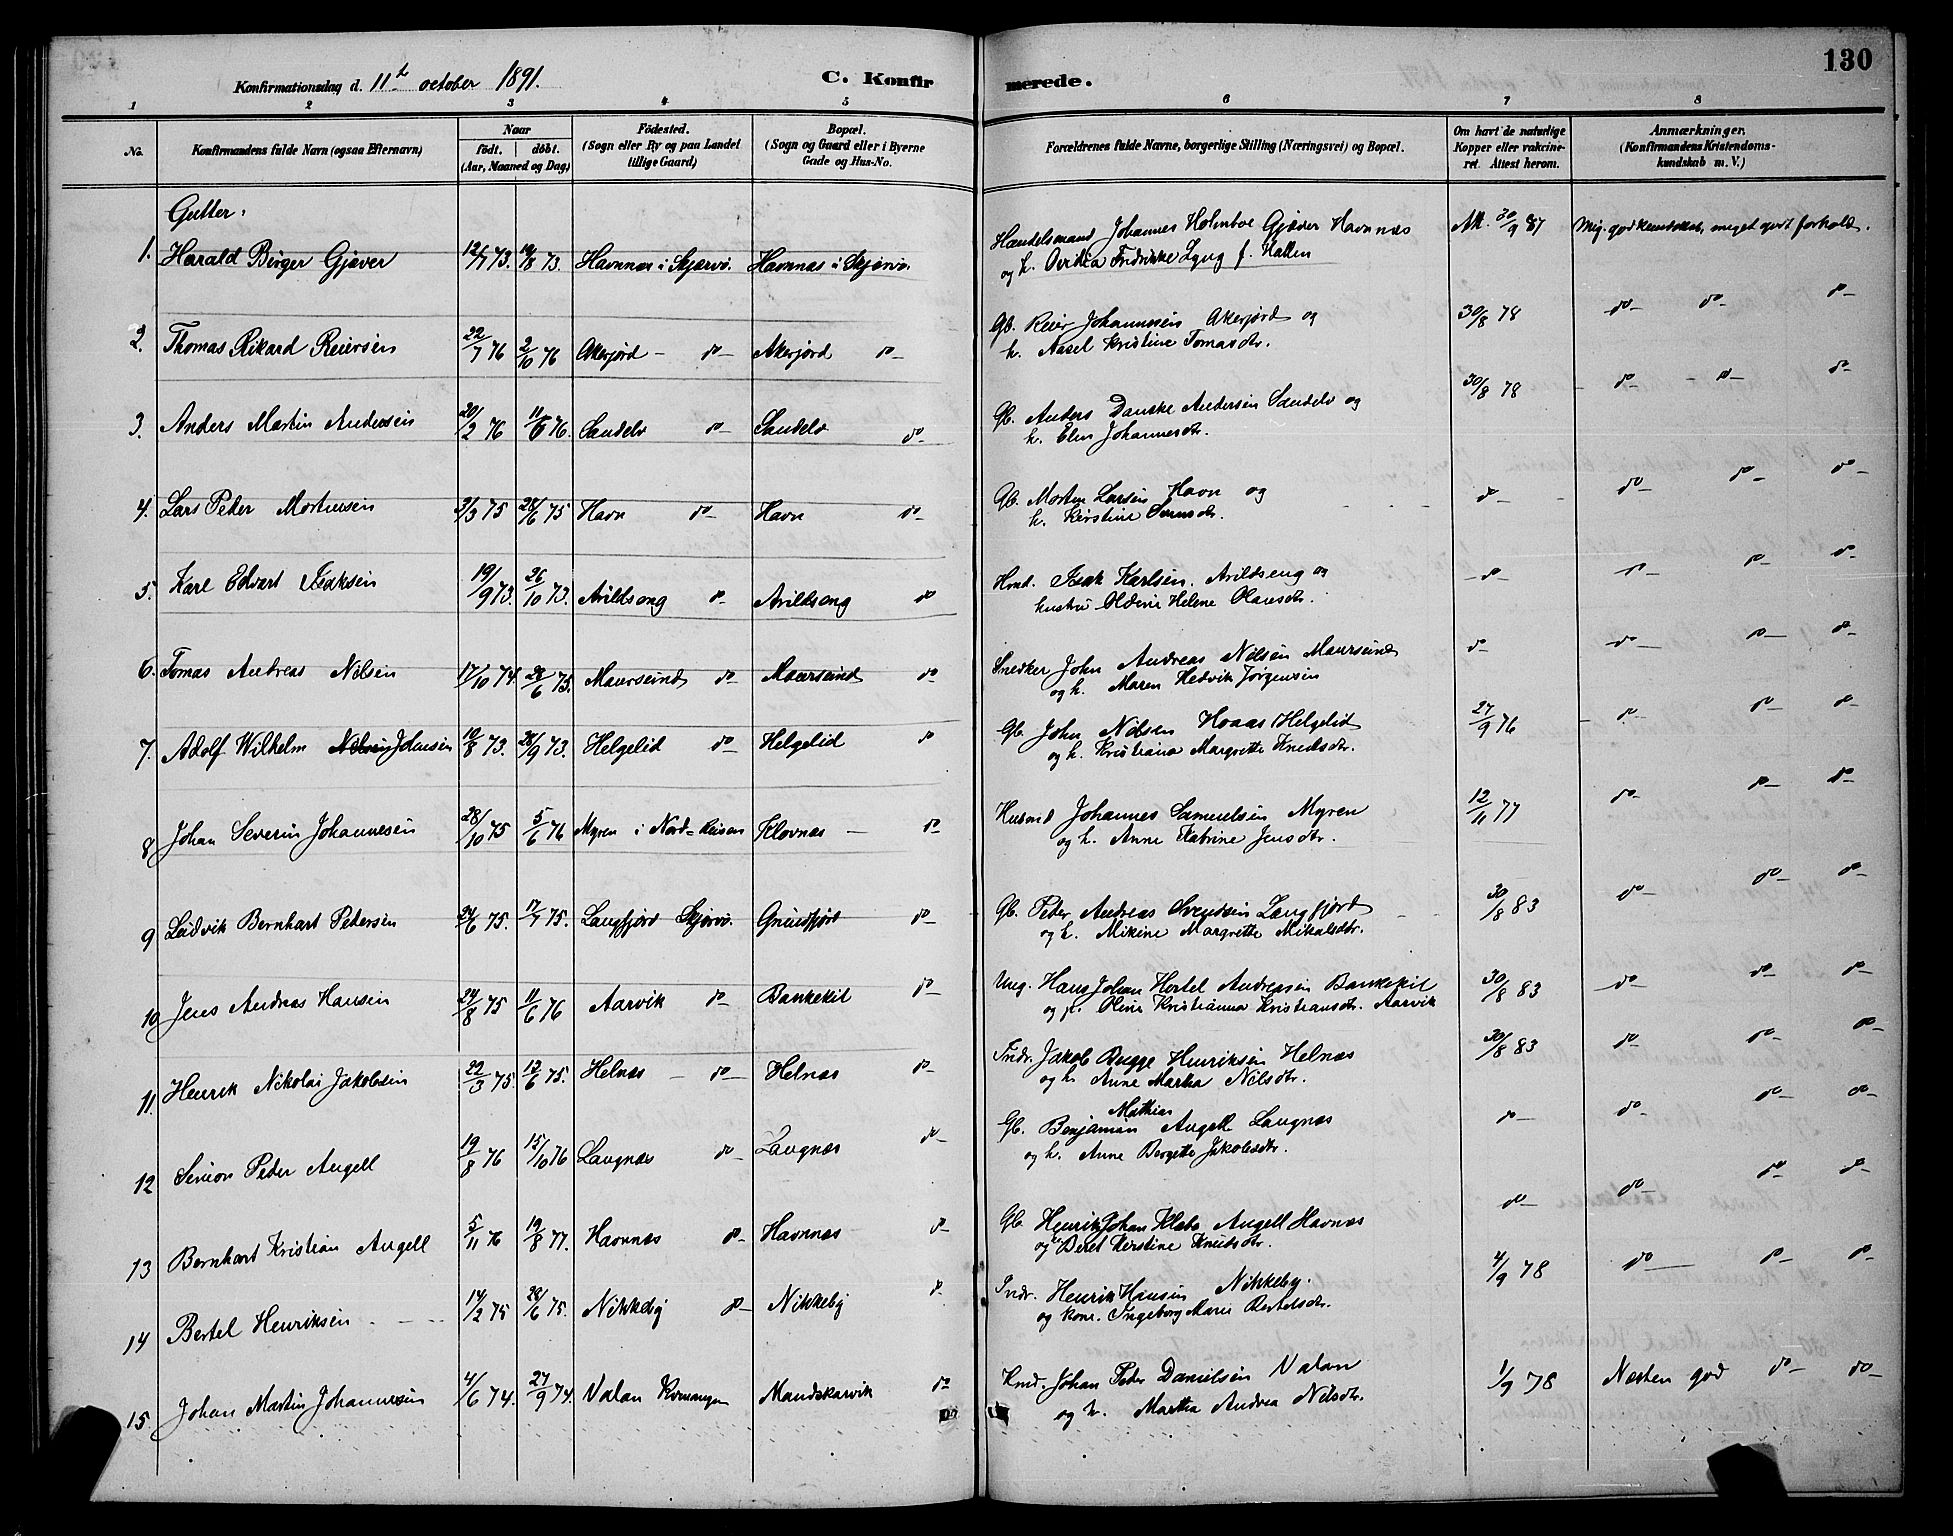 130
Konfirmationsdag d. 11te october 1891.
C. Konfirmerede.
1 2 3 4 5 6 7 8
No.
Konfirmandens fulde Navn (ogsaa Efternavn)
Naar
födt. döbt.
(Aar, Maaned og Dag)
Födested.
(Sogn eller By og paa Landet
tillige Gaard)
Bopæl.
(Sogn og Gaard eller i Byerne
Gade og Hus-No.
Forældrenes fulde Navne, borgerlige Stilling (Næringsvei) og Bopæl.
Om havt de naturlige
Kopper eller vakcine-
ret. Attest herom.
Anmærkninger.
(Konfirmandens Kristendoms-
kundskab m. V.)
Gutter.
1. Harald Birger Gjæver 12/7 73. 19/8 73. Havnnæs i Skjærvö. Havnnæs i Skjærvö. Handelsmand Johannes Holmboe Gjæver Havnnæs Att. 30/9 87 Mg. god kundskab, meget godt forhold.
og h. Fredrikke Lyng f. Hallen
2. Thomas Rikard Reiersen 22/7 76 2/10 76 Akerjord - do - Akerjord do - Gb. Reier Johannesen Akerjord og 30/8 78 do - do - do -
h. Aasel Kristine Tomasdtr.
3. Anders Martin Andersen 20/2 76 11/6 76. Sandelv do - Sandelv do - Gb. Anders Danske Andersen Sandelv og 30/8 78 - do - - do - do -
h. Elen Johannesdtr.
4. Lars Peder Mortensen 3/3 75 28/6 75 Havn do - Havn do - Gb. Morten Larsen Havn og do - do - do - do -
h. Kerstine
5. Karl Edvart Isaksen 19/9 73. 26/10 73. Arildseng do - Arildseng do Hmd. Isak Karlsen. Arildseng og - do - do - do - do -
hustru Oldine Helene Olausdtr.
6. Tomas Andreas Nilsen 17/10 74. 28/6 75. Maursund do - Maursund do - Snedker John Andreas Nilsen Maursund do - do - do - do -
og h. Maren Hedvik Jörgensen
7. Adolf Wilhelm Johnsen 10/8 73. 28/9 73. Helgelid do - Helgelid do - Gb. John Nilsen Hoaas Helgelid 27/9 76 - do - do - do -
og h. Kristiana Margrette Knudsdtr.
8 Johan Severin Johannesen 28/10 75 5/6 76 Myren i Nord-Reisen Klovnæs - do - Husmd Johannes Samuelsen Myren 12/11 77 do - do - do -
og h. Anne Katrine Jensdtr.
9 Ludvik Bernhart Pedersen 24/6 75. 17/7 75. Langfjord Skjervö. Grundfjord do - Gb. Peder Andreas Svendsen Langfjord 30/8 83 do - do - do -
og h. Mikine Margrette Mikalsdtr.
10 Jens Andreas Hansen 24/8 75 11/6 76 Aarvik do - Bankekil do - Ung. Hans Johan Hortel Andreasen Bankekil 30/8 83 do - do - do -
og p. Oline Kristianna Kristiansdtr. Aarvik
11. Henrik Nikolai Jakobsen 22/3 75. 13/6 75. Helnæs - do - Helnæs do - Indr. Jakob Bugge Henriksen Helnæs 30/8 83 do - do - do -
og h. Anne Marka Nilsdtr.
12 Simon Peder Angell 19/8 76 15/10 76 Langnæs do - Langnæs do - Gb. Benjamin Mathias Angell Langnæs do - do - do - do -
og h. Anne Bergette Jakobsdtr.
13 Bernhart Kristian Angell 5/11 76 19/8 77. Havnnæs do - Havnnæs do - Gb. Henrik Johan Klæbo Angell Havnæs do - do - do - do -
og h. Beret Kerstine Knudsdtr.
14 Bertel Henriksen 14/2 75 28/6 75. Nikkeby do - Nikkeby do - Indr. Henrik Hansen Nikkeby. 4/9 78 do - do - do -
og kone. Ingeborg Marie Bertelsdtr.
15. Johan Martin Johannessen 4/6 74. 27/9 74. Valan Kvænangen Mandskarvik do - Hmd. Johan Peder Danielsen Valan 1/9 78 Næsten god do - do -
og h. Martha Andrea Nilsdtr.